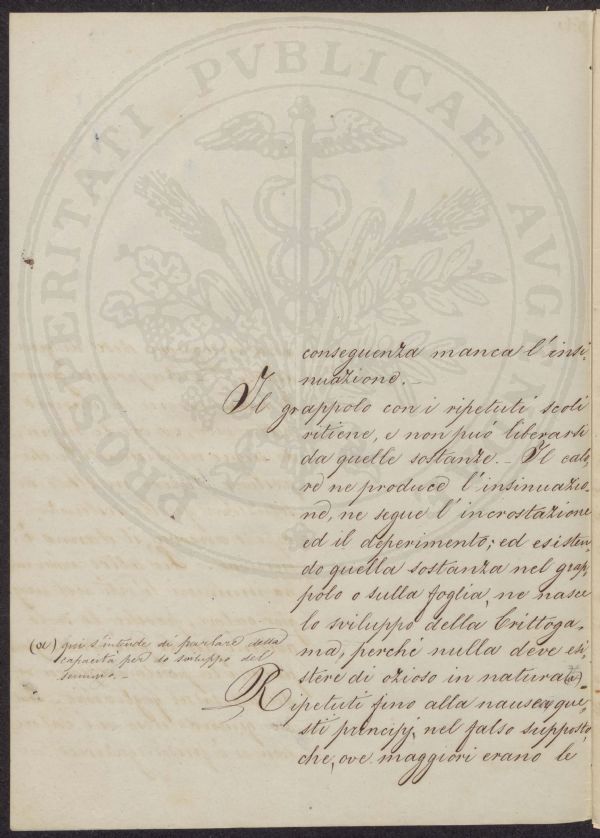 PROSPERITATI PVBLICAE AVGE
conseguenza manca l'insi-
nuazione.-
Il grappolo con i ripetuti scoli
ritiene, e non può liberarsi
da quelle sostanze.- Il calo,
re ne produce l'insinuazio-
ne, ne segue l'incrostazione
ed il deperimento; ed esisten-
do quella sostanza nel grap-
polo o sulla foglia, ne nasce
lo sviluppo della Crittoga,
ma, perché nulla deve esi
stere di ozioso in natura (a).
(a) qui s'intende di parlare della
capacità per lo sviluppo del
Ripetuti fino alla nausea que,
sti principj, nel falso supposto,
che, ove maggiori erano le